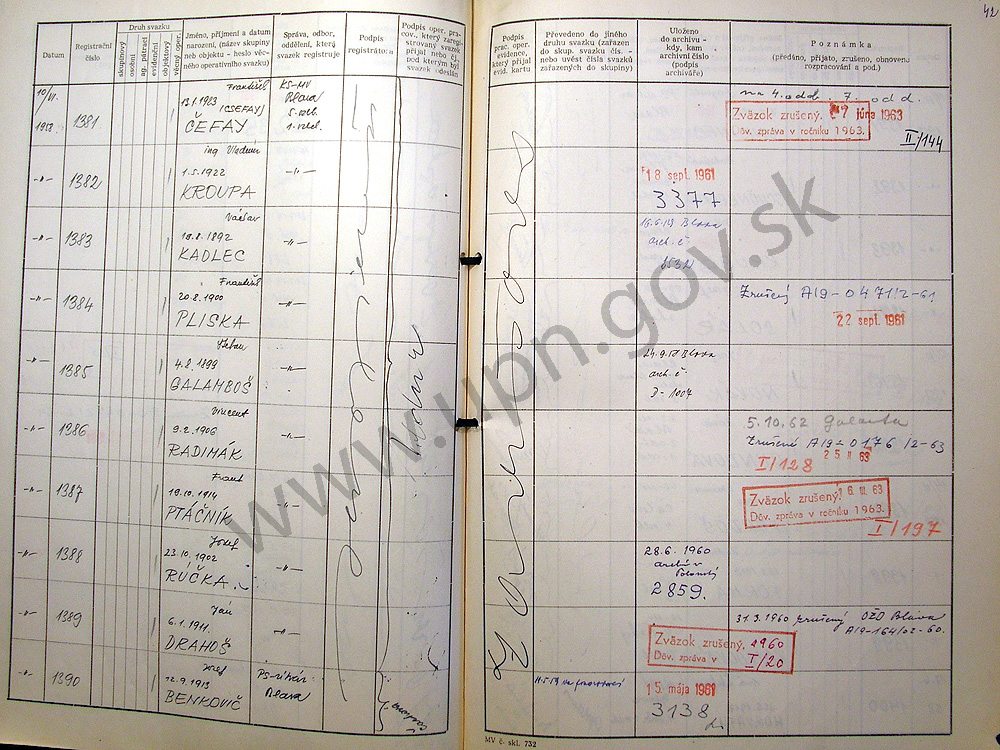 42
Datum
Registrační číslo
Druh svazku
skupinový
osobní
ag. pátrací
evidenční
objektový
věcný oper.
Jméno, příjmení a datum
narození, (název skupiny
neb objektu - heslo věc-
ného operativního svazku)
Správa, odbor,
oddělení, která
svazek registruje
Podpis
registrátora
Podpis oper. pra-
cov., který zaregi-
strovaný svazek
přijal nebo čj.,
pod kterým byl
svazek odeslán
Podpis
prac. oper.
evidence,
který přijal
evid. kartu
Převedeno do jiného
druhu svazku (zařazen
do skup. svazku čís. -
nebo uvést čísla svazků
zařazených do skupiny)
Uloženo
do archivu -
kdy, kam
archivní číslo
(podpis
archiváře)
Poznámka
(předáno, přijato, zrušeno, obnoveno
rozpracování a pod.)
10/VI.
1952
1381
František
13.1.1923 (CSEFAY)
ČEFAY
KS-MV
Blava
5. odd.
1. odd.
na 4. odd. 7. odd.
Zväzok zrušený. 27 júna 1963
Dôv. zpráva v ročníku 1963.
II/144
-"- 1382
ing. Vladimír
1.5.1922
KROUPA
-"-
18 sept. 1961
3377
-"- 1383
Václav
10.8.1892
KADLEC
-"-
Blava
arch. č.
-"- 1384
František
20.8.1900
PLISKA
-"-
Zrušený A19-0471/2-61
22 sept. 1961
-"- 1385
Štefan
4.8.1899
GALAMBOŠ
-"-
24.9.58 Blava
arch. č.
D-1004
-"- 1386
Vincent
9.2.1906
RADIMÁK
-"-
5.10.62 Galanta
Zrušené A19-0176/2-63
I/128 25 II 63
-"- 1387
Frant
19.10.1914
PTÁČNÍK
-"-
Zväzok zrušený. 16. III. 63
Dôv. zpráva v ročníku 1963.
I/197
-"- 1388
Jozef
23.10.1902
RÚČKA
-"-
28.6.1960
archív v
2859.
-"- 1389
Ján
6.1.1911.
DRAHOŠ
-"-
31.3.1960 zrušený OŽD Blava
A19-164/02-60.
Zväzok zrušený. 1960
Dôv. zpráva v I/20
-"- 1390
Jozef
12.9.1913
BENKOVIČ
Blava
15. mája 1961
3138
MV č. skl. 732
www.upn.gov.sk